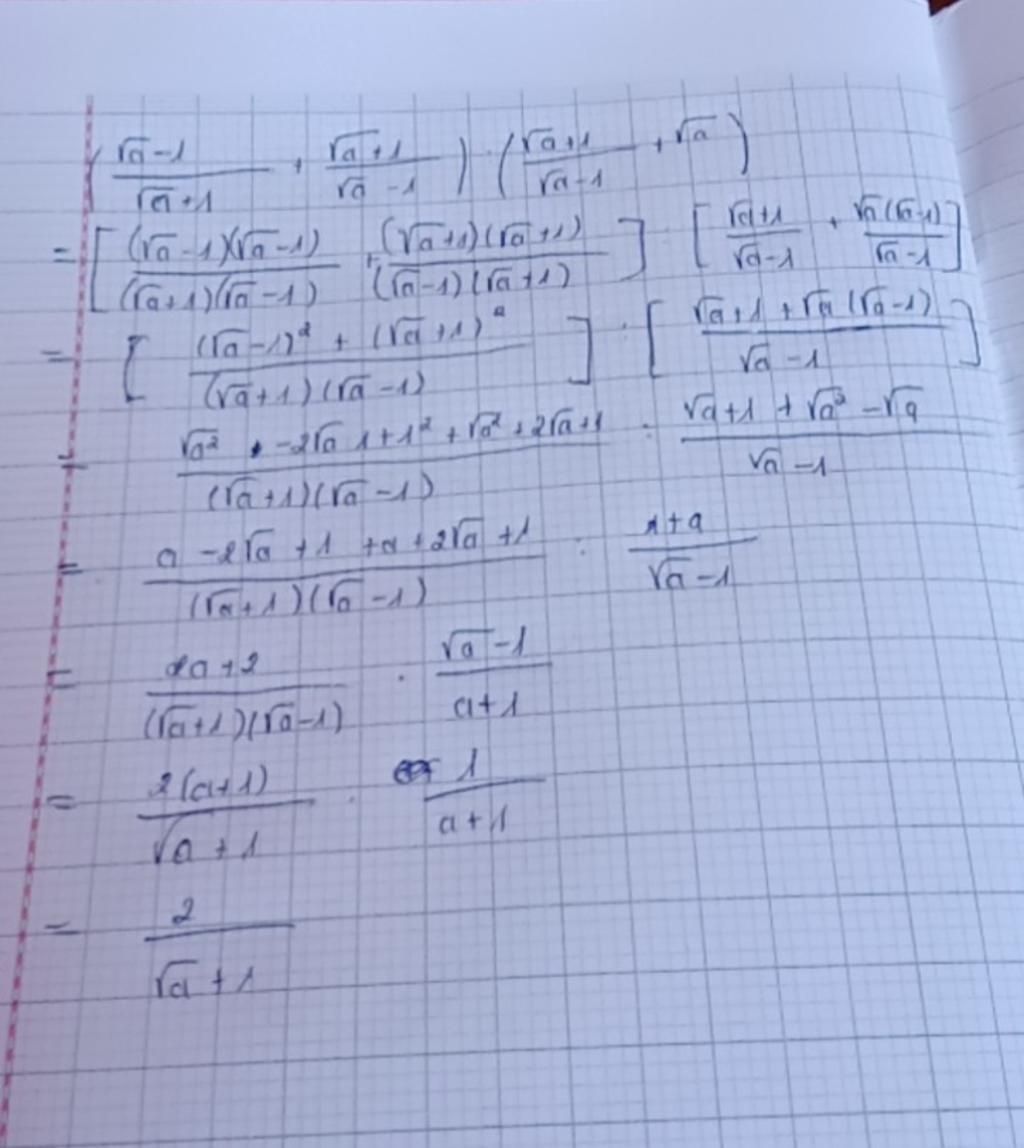 ( (√a -1)/(√a +1) + (√a +1)/(√a -1) ) : ( (√a+1)/(√a-1) + √a )
= [ ((√a -1)(√a -1))/((√a+1)(√a -1)) + ((√a+1)(√a+1))/((√a-1)(√a+1)) ] : [ (√a+1)/(√a-1) + (√a(√a-1))/(√a-1) ]
= [ ((√a-1)² + (√a+1)²)/((√a+1)(√a-1)) ] : [ (√a+1+√a(√a-1))/(√a-1) ]
= (√a² -2√a 1+1² + √a² + 2√a+1)/((√a+1)(√a-1)) : (√a+1+√a² -√a)/(√a-1)
= (a -2√a +1 +a+2√a +1)/((√a+1)(√a-1)) : (1+a)/(√a-1)
= (2a+2)/((√a+1)(√a-1)) · (√a-1)/(a+1)
= (2(a+1))/(√a+1) · 1/(a+1)
= 2/(√a+1)